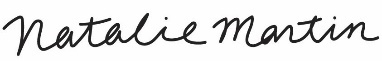 Natalie Martin